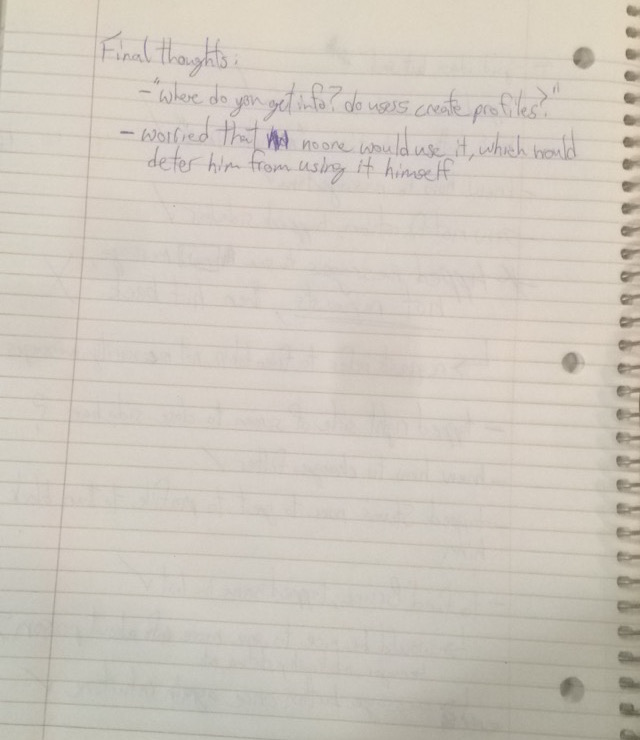 Final thoughts:
- "Where do you get info? do users create profiles?"
- worried that no one would use it, which would
deter him from using it himself